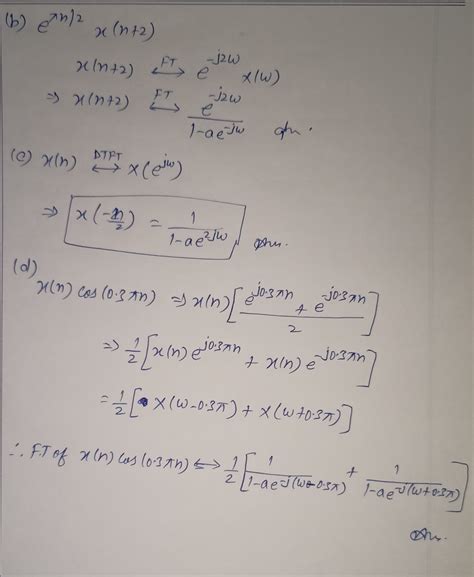 (b) e^πn/2 x(n+2)
x(n+2) FT↔ e^-j2ω x(ω)
⇒ x(n+2) FT↔ e^-j2ω / 1-ae^-jω Ans.
(c) x(n) DTFT↔ x(e^jω)
⇒ x(-n/2) = 1 / 1-ae^2jω Ans.
(d)
x(n) cos(0.3πn) ⇒ x(n) [e^j0.3πn + e^-j0.3πn / 2]
⇒ 1/2 [x(n) e^j0.3πn + x(n) e^-j0.3πn]
= 1/2 [x(ω-0.3π) + x(ω+0.3π)]
∴ FT of x(n) cos(0.3πn) ↔ 1/2 [1 / 1-ae^-j(ω-0.3π) + 1 / 1-ae^-j(ω+0.3π)]
Ans.